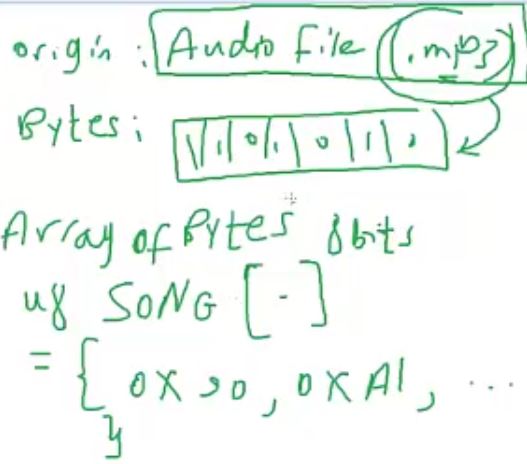 origin : Audio file (.mp3)
Bytes : 1 1 0 1 0 1 0
Array of Bytes 8bits
u8 SONG [ - ]
= { 0x90, 0xA1, ...
}